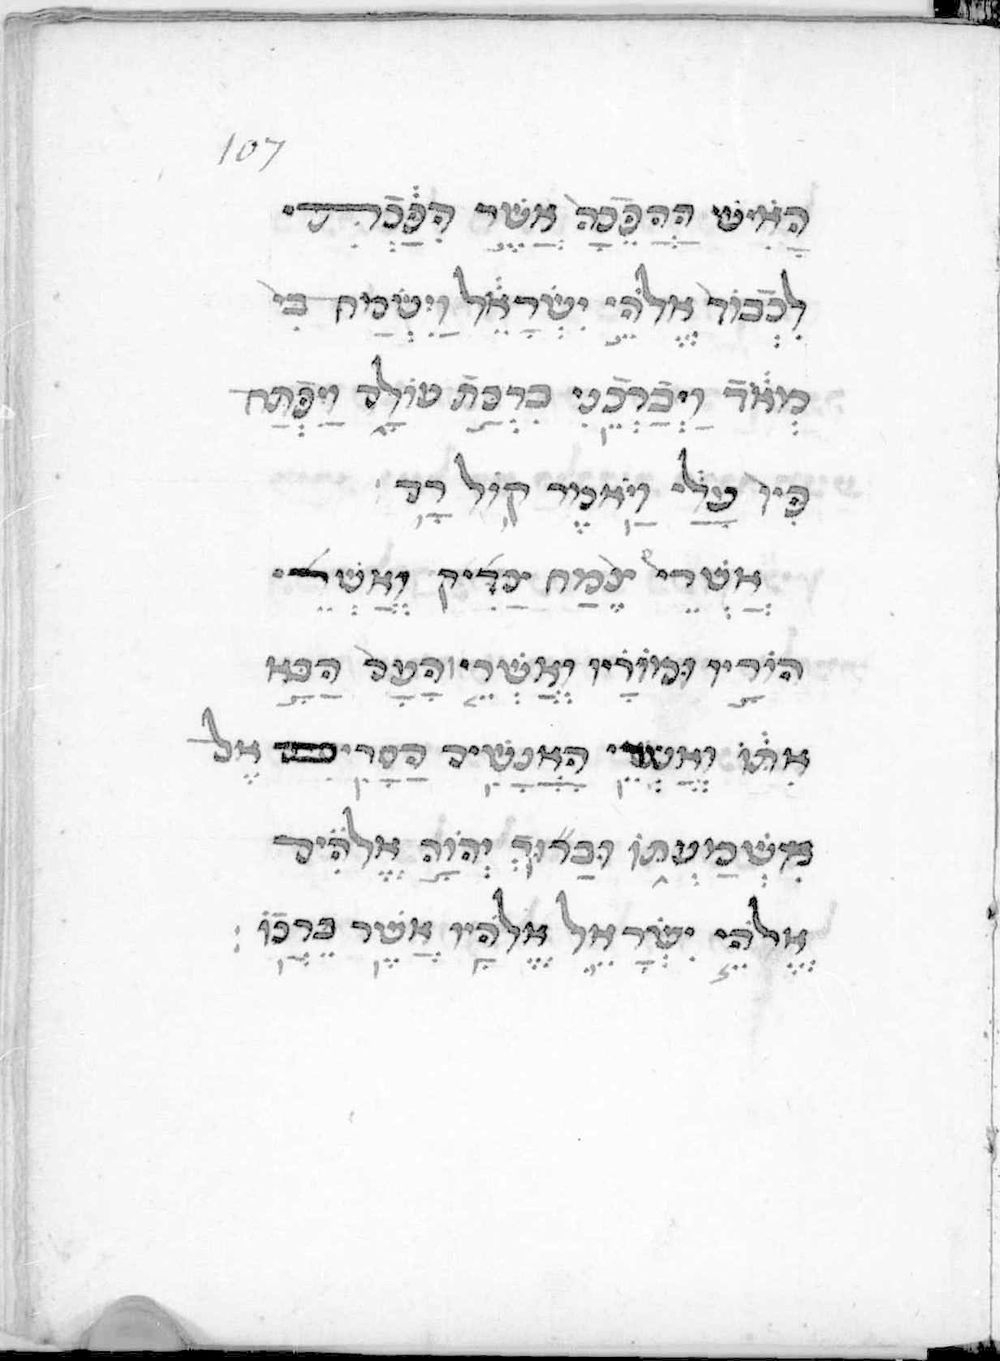 107
האיש ההפכה אשר הפכרתי
לכבוד אלהי ישראל וישמח בי
מאד ויברכני ברכת עולם ויפתח
פיו עלי ויאמר קול רם
אשרי צמח צדיק ואשרי
הוריו ומוריו ואשרי העם הבא
אתו ואשרי האנשים הסרים אל
משמעתו וברוך יהוה אלהים
אלהי ישראל אלהיו אשר ברכו :